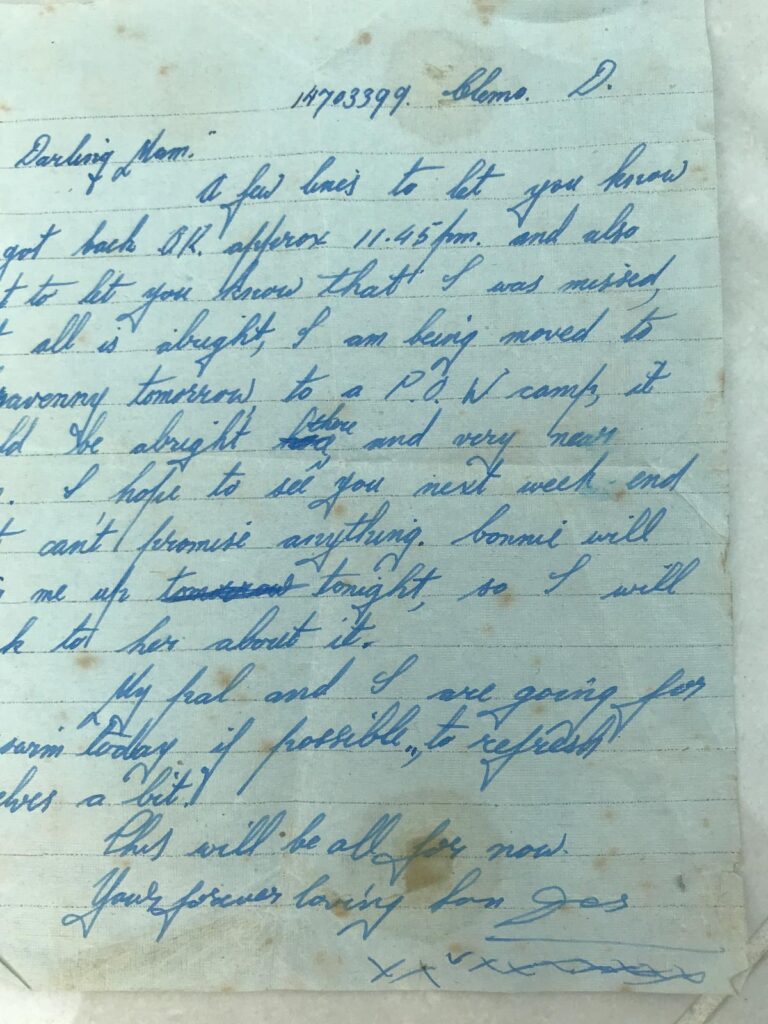 14703399. Clemo. D.
Darling Mam."
A few lines to let you know
got back OK. approx 11.45pm. and also
t to let you know that I was missed,
t all is alright, I am being moved to
avenny tomorrow, to a P.O.W camp, it
ld be alright there and very near
. I hope to see you next week-end
t can't promise anything. Connie will
me up tomorrow tonight, so I will
k to her about it.
My pal and I are going for
swim today if possible, to refresh
elves a bit.
This will be all for now.
Yours forever loving Son Des